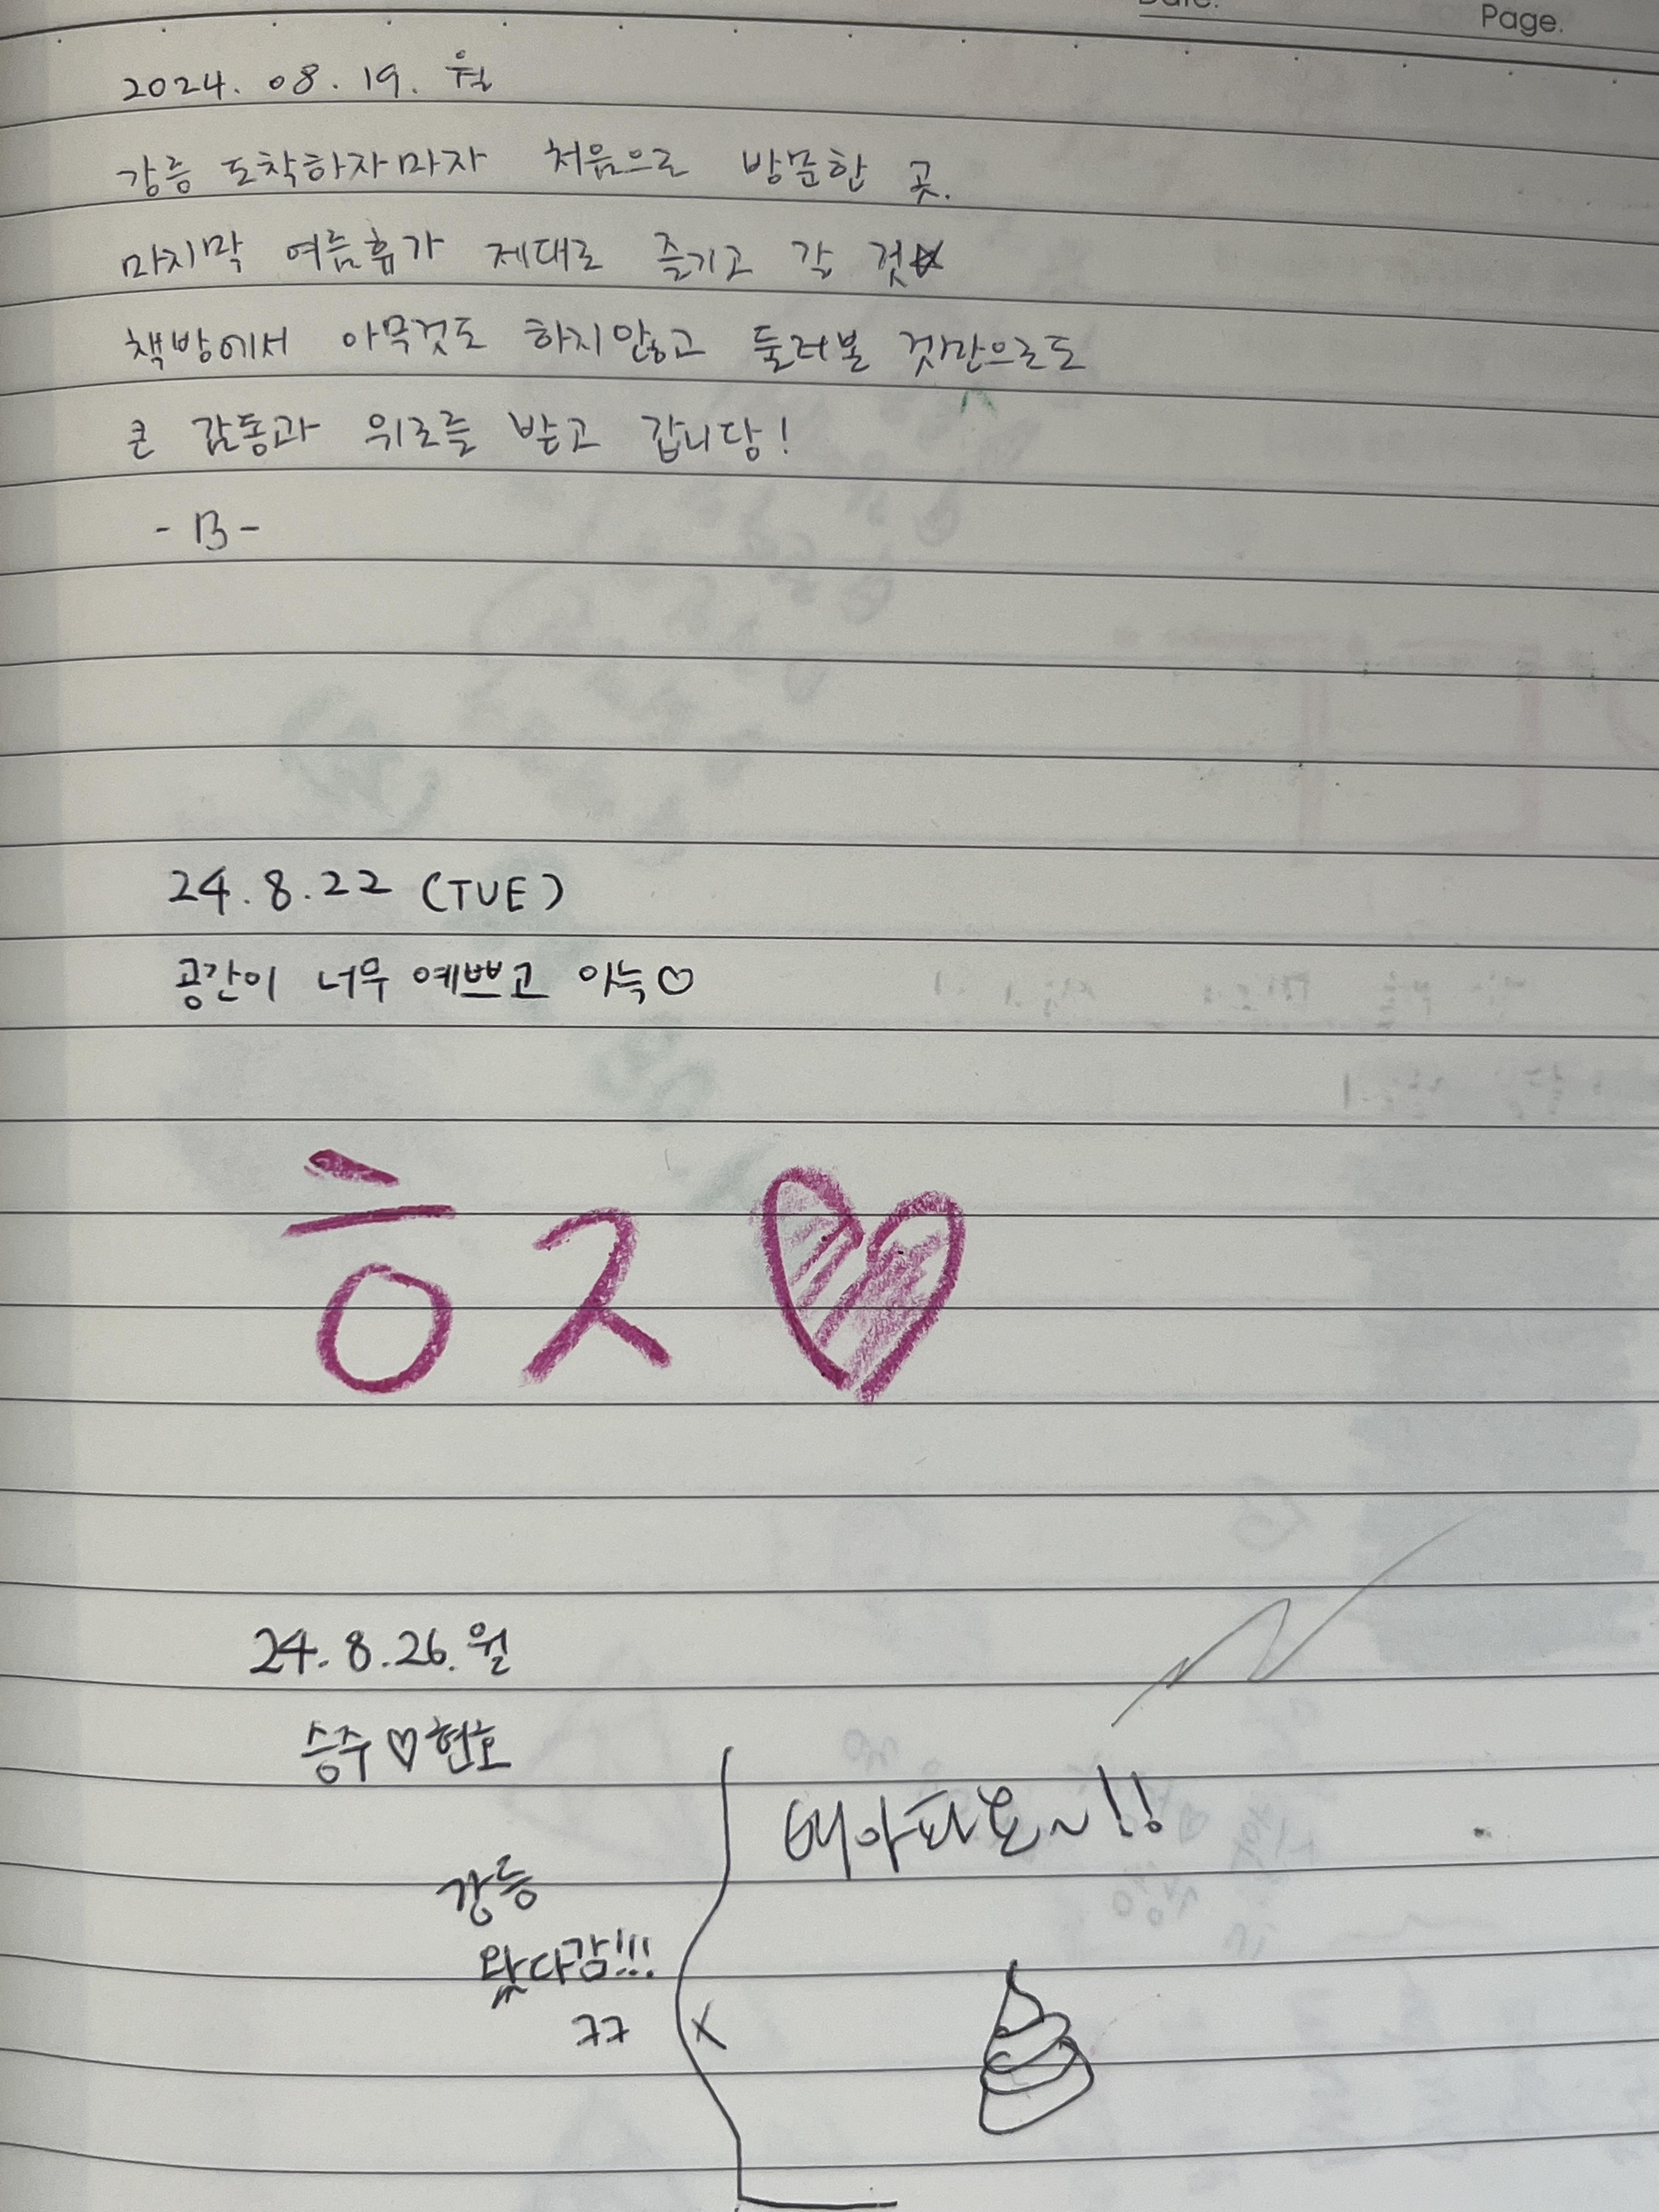 Page.
2024. 08. 19. 월
강릉 도착하자마자 처음으로 방문한 곳.
마지막 여름휴가 제대로 즐기고 갈 것
책방에서 아무것도 하지않고 둘러볼 것만으로도
큰 감동과 위로를 받고 갑니당!
- B -
24.8.22 (TUE)
공간이 너무 예쁘고 아늑♡
ㅎㅈ♡
24.8.26.월
승주♡현호
강릉
왔다감!!!
ㅋㅋ
배아파요~!!